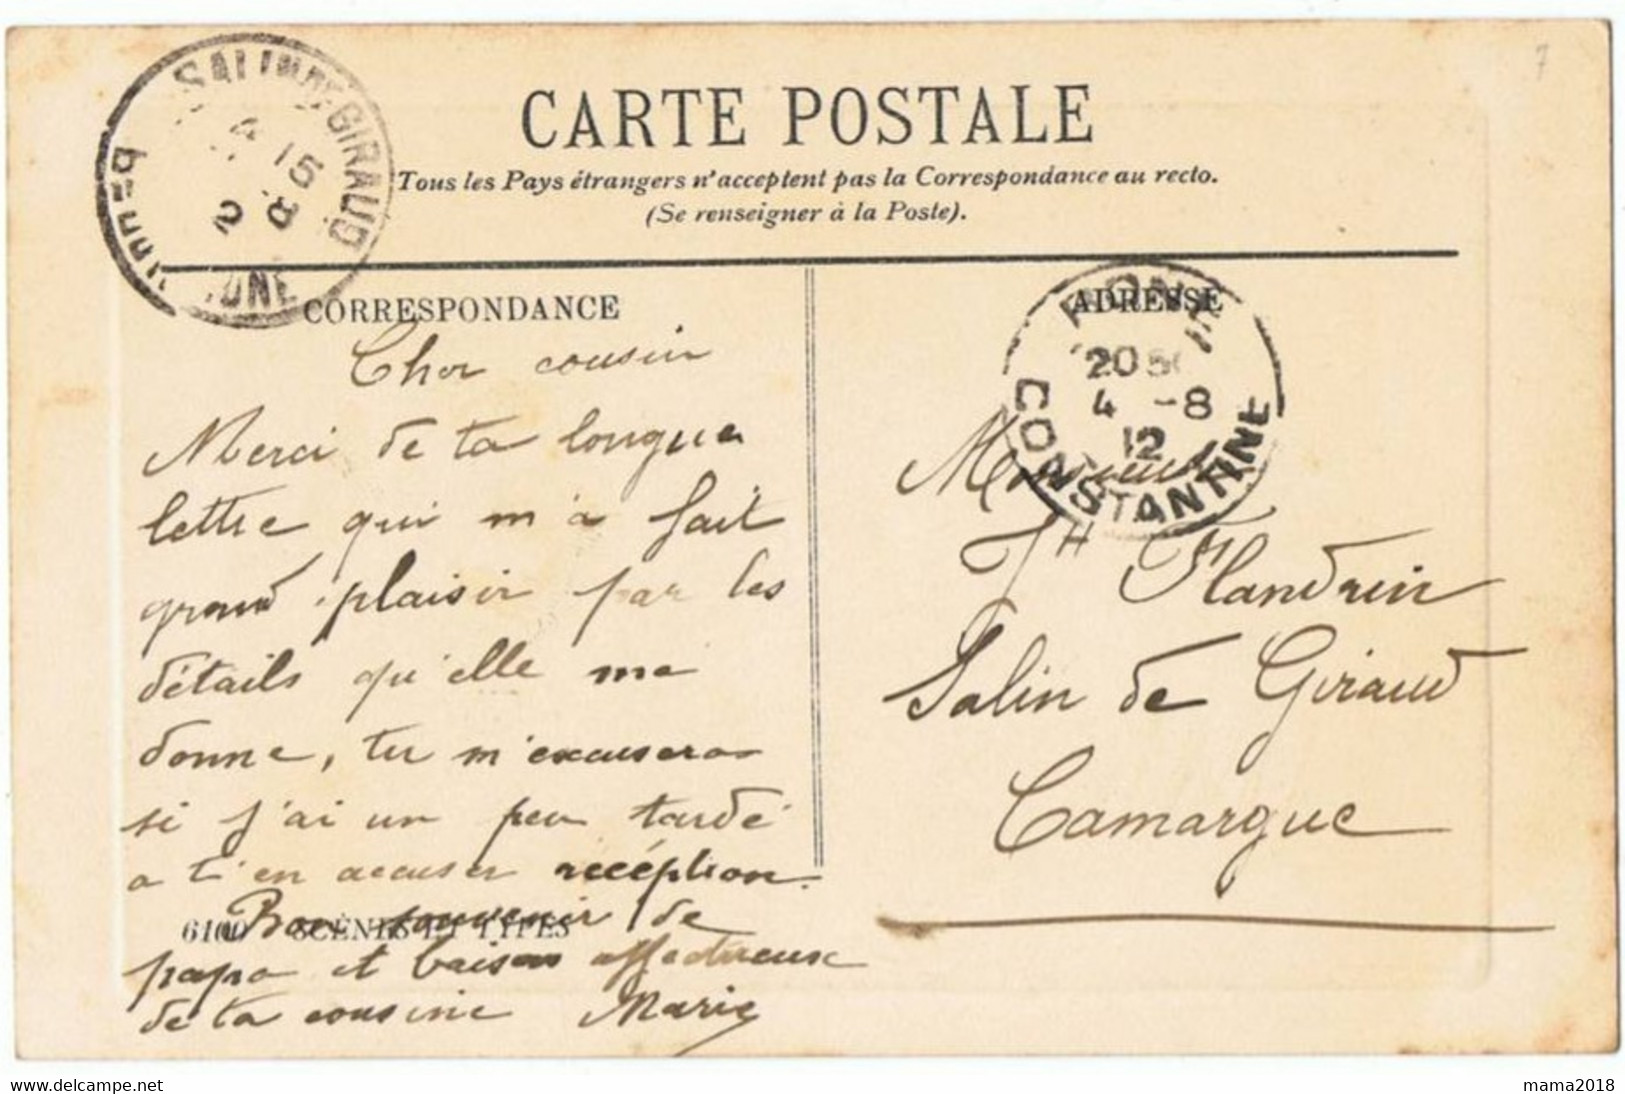 7
CARTE POSTALE
Tous les Pays étrangers n'acceptent pas la Correspondance au recto.
(Se renseigner à la Poste).
SALIN-DE-GIRAUD
15
8
CORRESPONDANCE
ADRESSE
20
4 -8
12
CONSTANTINE
Cher cousin
Merci de ta longue
lettre qui m'a fait
grand plaisir par les
détails qu'elle me
donne, tu m'excuseras
si j'ai un peu tardé
a t'en accuser recéption.
Bon souvenir de
6100 SCÈNES ET TYPES
papa et baisers affectueux
de ta cousine Marie
Monsieur
JH Flandrin
Salin de Giraud
Camargue
www.delcampe.net
mama2018